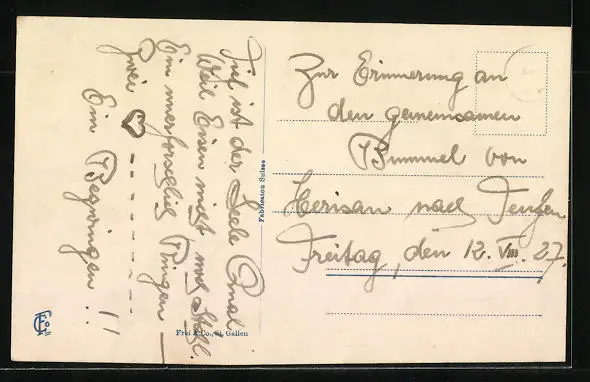 Tief ist der Seele Qual
Weil Eisen nicht, noch Stahl.
Ein unerforschlich Ringen —
Zwei ♡ - - - - - - -
Ein Bezwingen !!
Fabrication Suisse
Frei & Co., St. Gallen
Zur Erinnerung an
den gemeinsamen
Bummel von
Herisau nach Teufen
Freitag, den 12. VIII. 27.